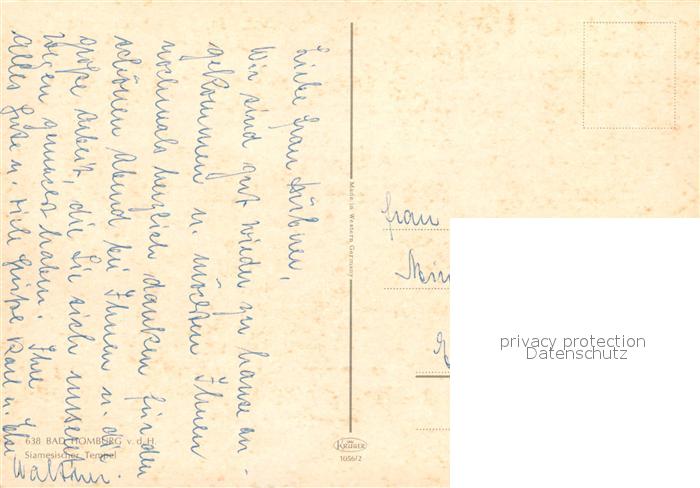 Liebe Frau Hübner,
Wir sind gut wieder zu hause an-
gekommen u. möchten Ihnen
nochmals herzlich danken für den
schönen Abend bei Ihnen u. die
große Arbeit, die Sie sich unseret-
wegen gemacht haben. Ihnen
alles Gute u. viele Grüße Karl u. Else
Waltner.
638 BAD HOMBURG v. d. H.
Siamesischer Tempel
Made in Western Germany
KRÜGER
1056/2
Frau
privacy protection
Datenschutz